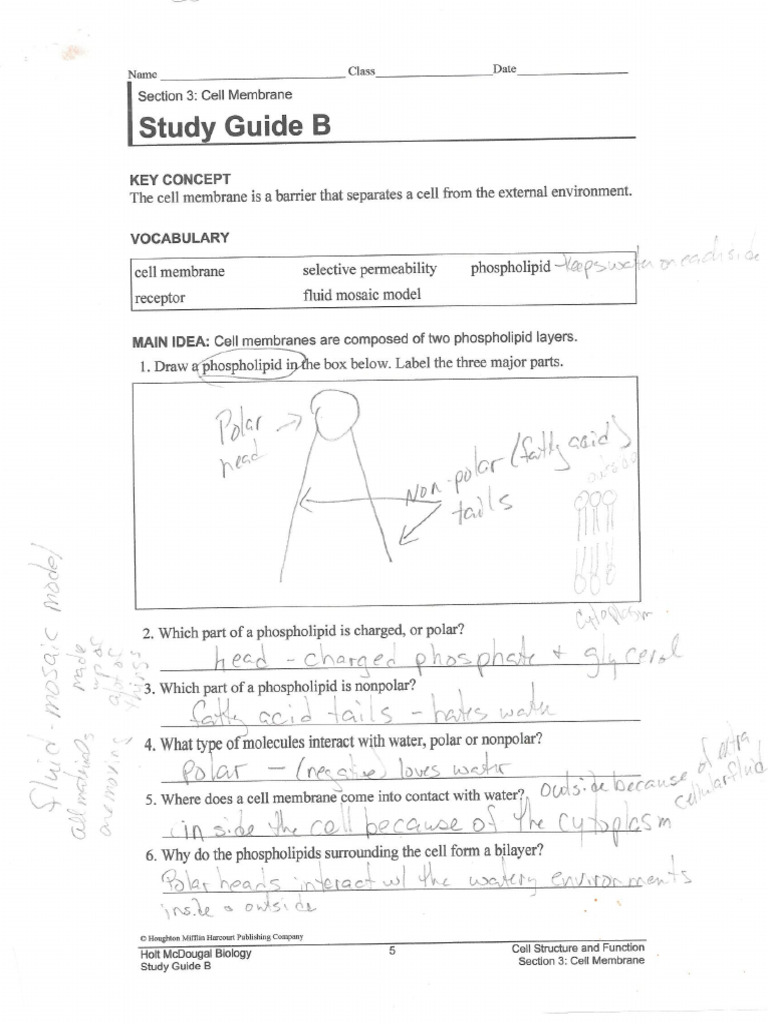 Name Class Date
Section 3: Cell Membrane
Study Guide B
KEY CONCEPT
The cell membrane is a barrier that separates a cell from the external environment.
VOCABULARY
cell membrane selective permeability phospholipid - keeps water on each side
receptor fluid mosaic model
MAIN IDEA: Cell membranes are composed of two phospholipid layers.
1. Draw a phospholipid in the box below. Label the three major parts.
Polar
head
Non-polar (fatty acid)
tails
outside
Cytoplasm
2. Which part of a phospholipid is charged, or polar?
head - charged phosphate + glycerol
3. Which part of a phospholipid is nonpolar?
fatty acid tails - hates water
4. What type of molecules interact with water, polar or nonpolar?
Polar - (negative) loves water
5. Where does a cell membrane come into contact with water? Outside because of extra
cellular fluid
inside the cell because of the cytoplasm
6. Why do the phospholipids surrounding the cell form a bilayer?
Polar heads interact w/ the watery environments
inside & outside
fluid-mosaic model
made
up of
a lot of
things
all
are moving
© Houghton Mifflin Harcourt Publishing Company
Holt McDougal Biology 5 Cell Structure and Function
Study Guide B Section 3: Cell Membrane